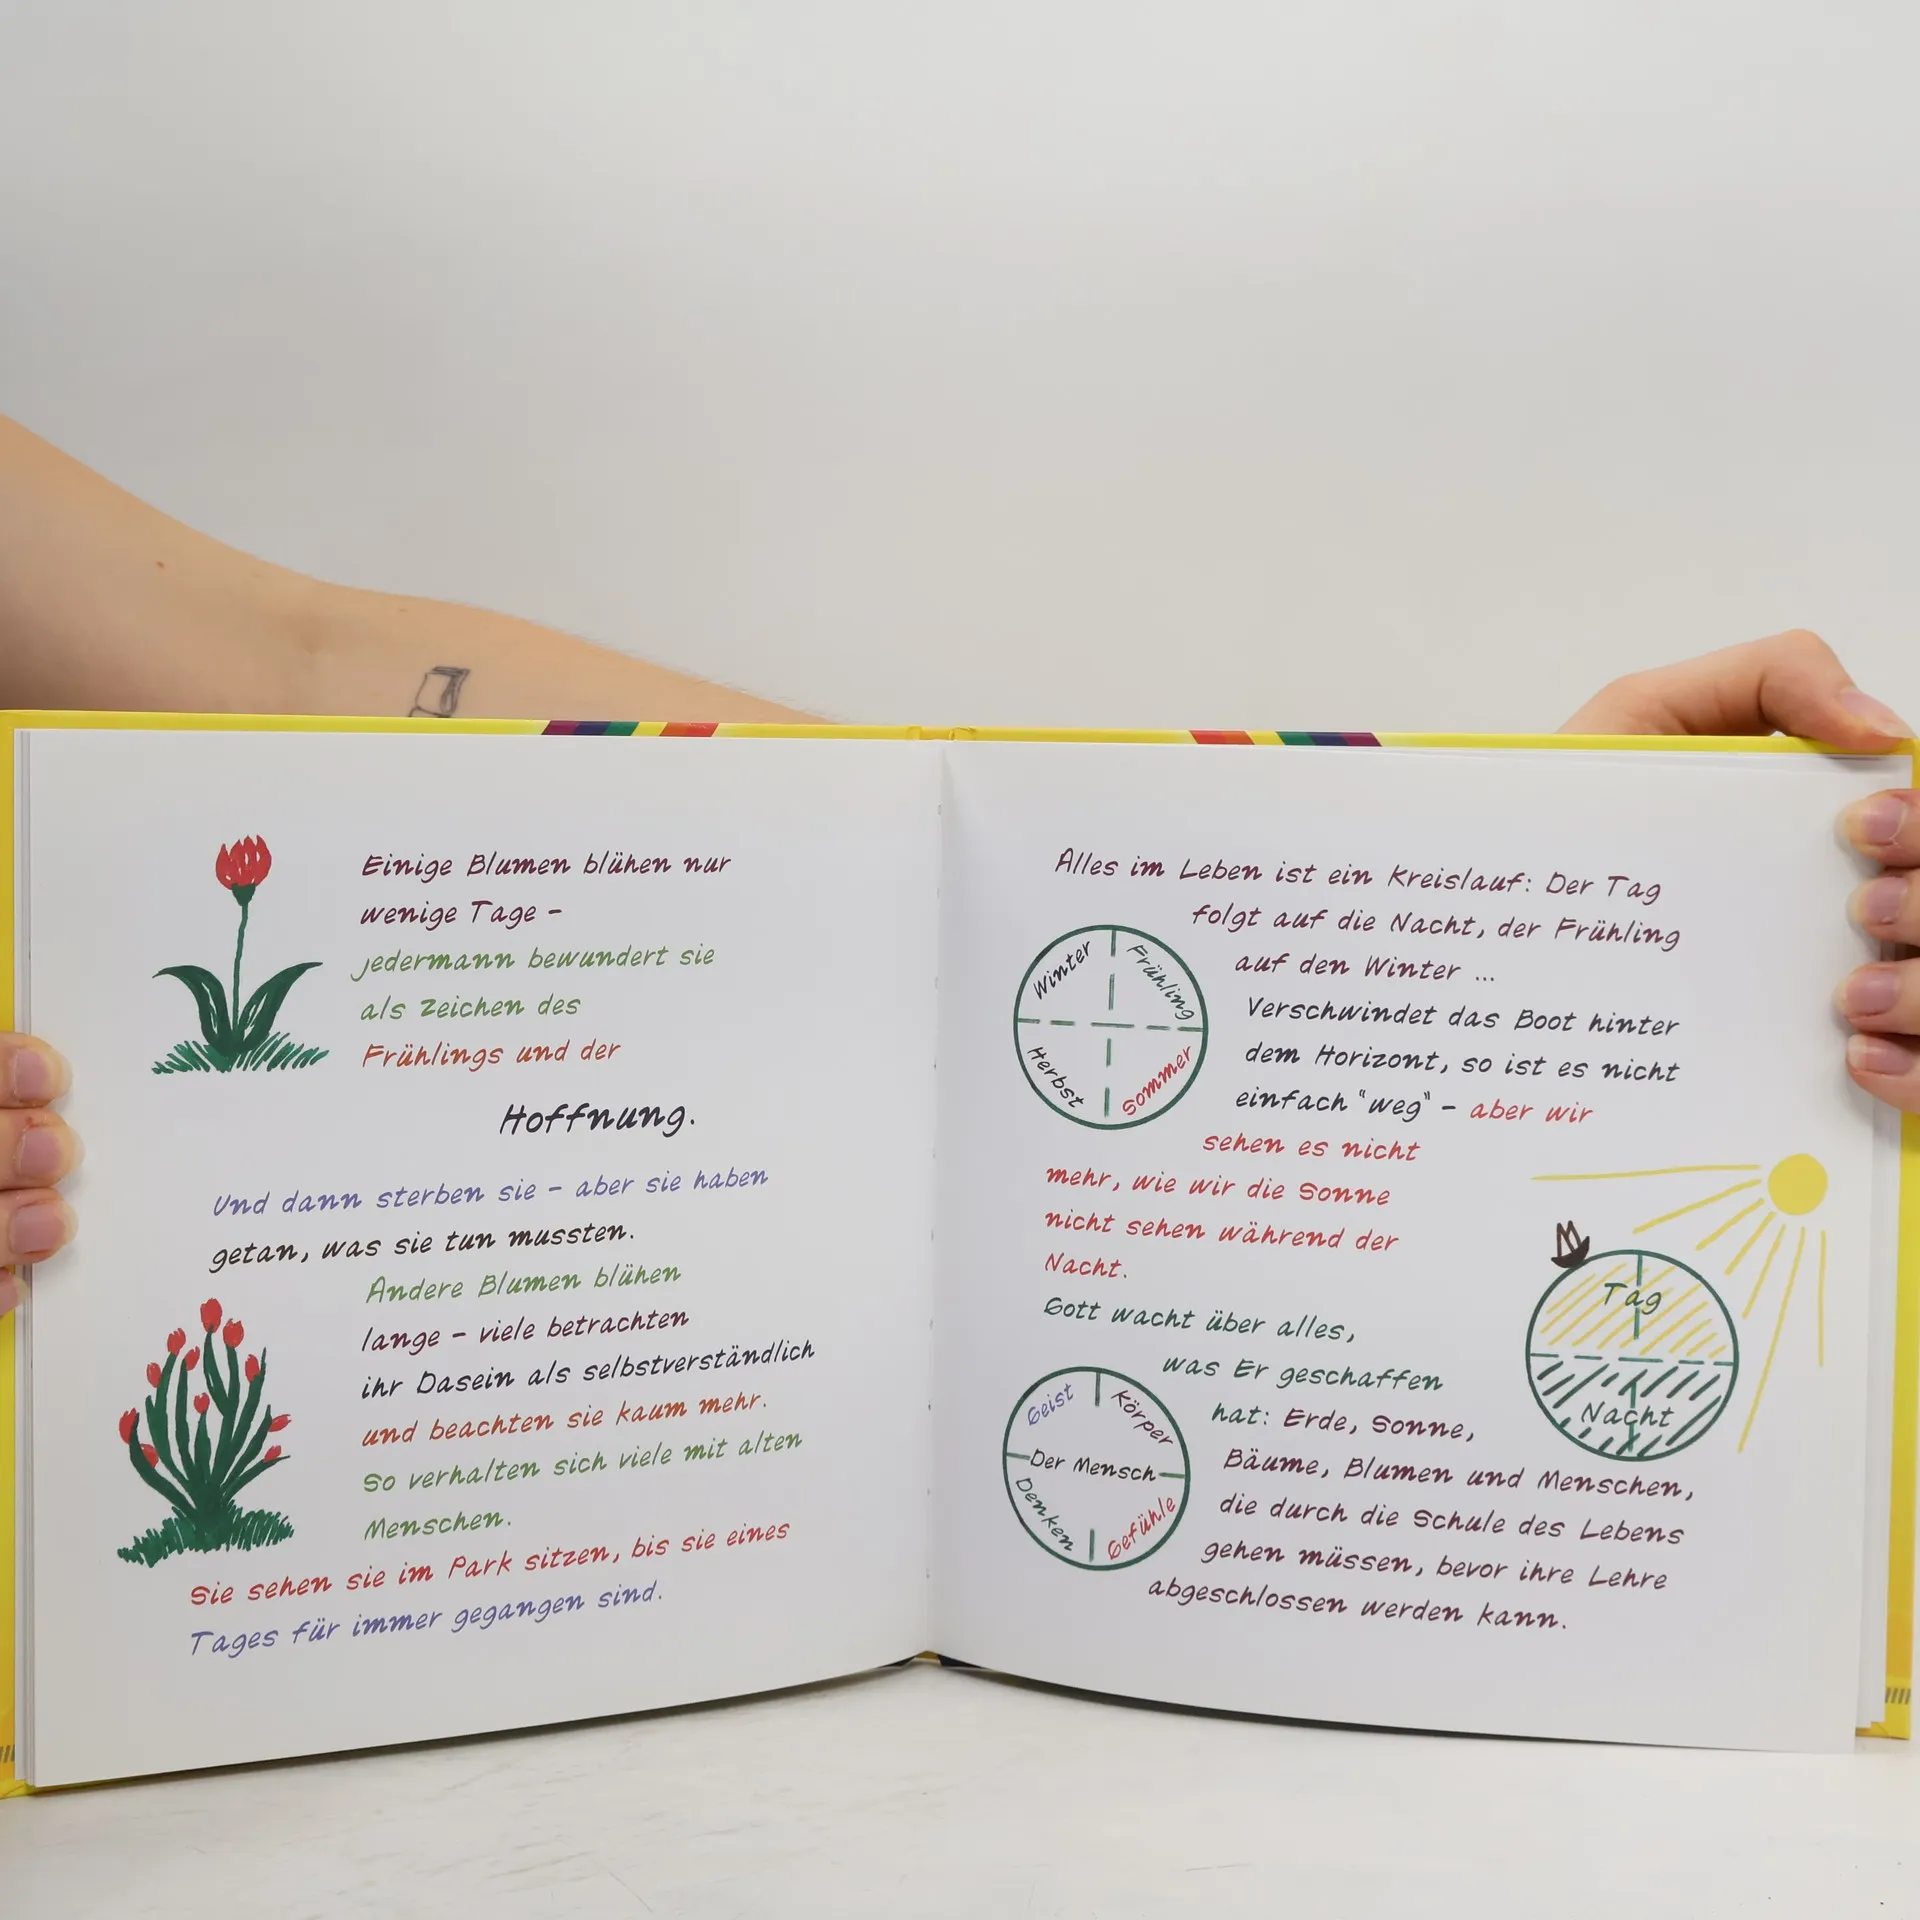 Einige Blumen blühen nur
wenige Tage –
jedermann bewundert sie
als Zeichen des
Frühlings und der
Hoffnung.
Und dann sterben sie – aber sie haben
getan, was sie tun mussten.
Andere Blumen blühen
lange – viele betrachten
ihr Dasein als selbstverständlich
und beachten sie kaum mehr.
So verhalten sich viele mit alten
Menschen.
Sie sehen sie im Park sitzen, bis sie eines
Tages für immer gegangen sind.
Alles im Leben ist ein Kreislauf: Der Tag
folgt auf die Nacht, der Frühling
auf den Winter ...
Verschwindet das Boot hinter
dem Horizont, so ist es nicht
einfach "weg" – aber wir
sehen es nicht
mehr, wie wir die Sonne
nicht sehen während der
Nacht.
Gott wacht über alles,
was Er geschaffen
hat: Erde, Sonne,
Bäume, Blumen und Menschen,
die durch die Schule des Lebens
gehen müssen, bevor ihre Lehre
abgeschlossen werden kann.
Winter
Frühling
Herbst
Sommer
Tag
Nacht
Geist
Körper
Der Mensch
Denken
Gefühle